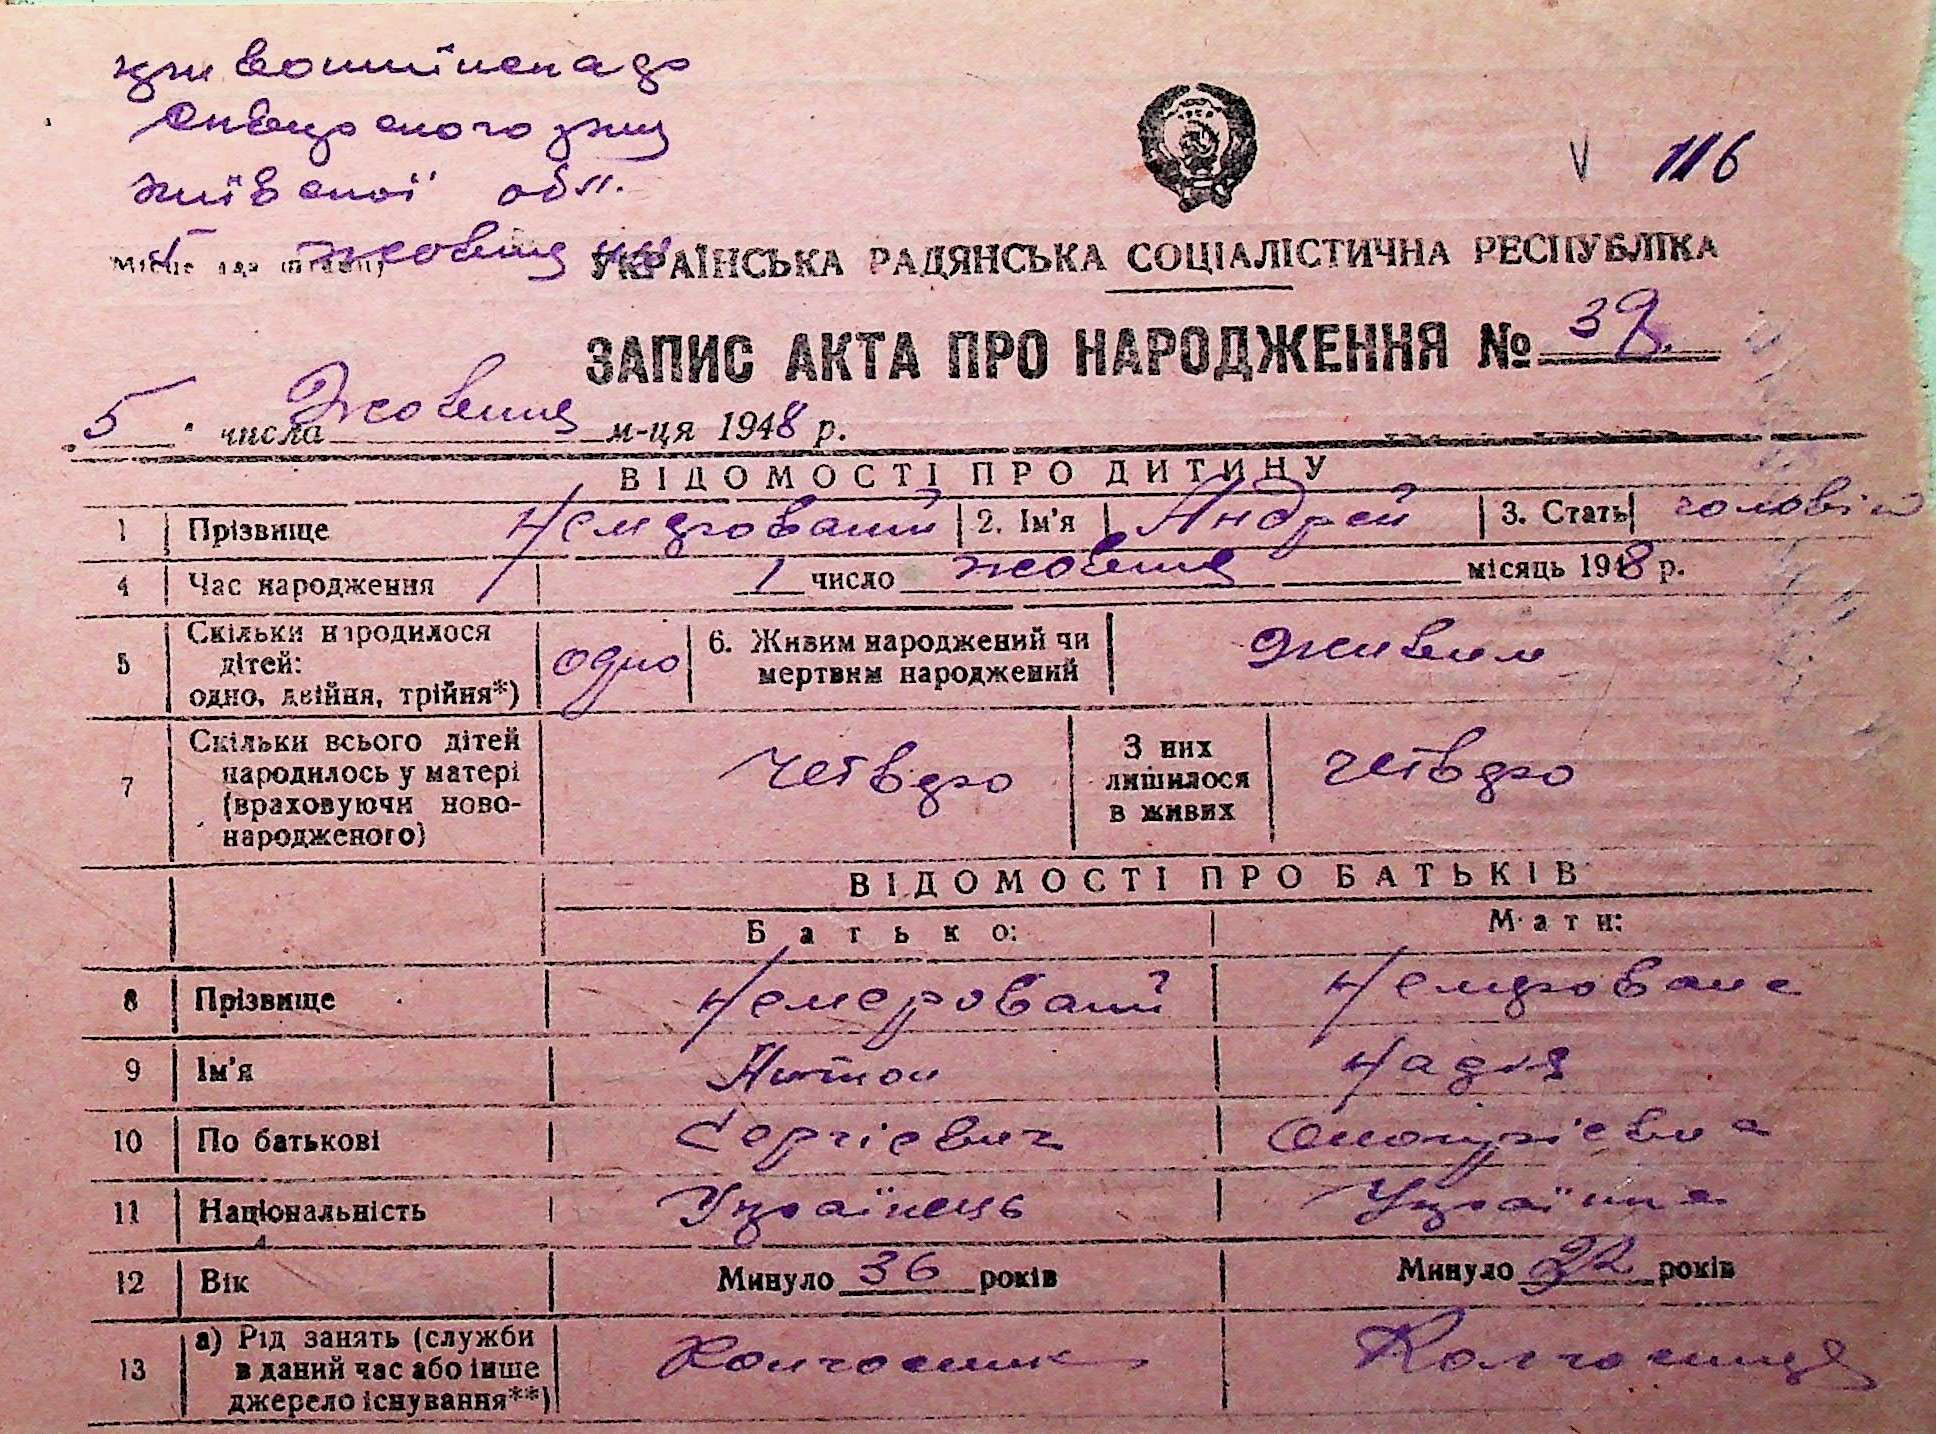 Київської обл.
5 жовтня
V 116
УКРАЇНСЬКА РАДЯНСЬКА СОЦІАЛІСТИЧНА РЕСПУБЛІКА
ЗАПИС АКТА ПРО НАРОДЖЕННЯ № 39
5 числа Жовтня м-ця 1948 р.
ВІДОМОСТІ ПРО ДИТИНУ
1 Прізвище Немерований 2. Ім'я Андрей 3. Стать чоловіч
4 Час народження 1 число жовтня місяць 1948 р.
5 Скільки народилося дітей: одно, двійня, трійня*) одно 6. Живим народжений чи мертвим народжений Живим
7 Скільки всього дітей народилось у матері (враховуючи ново-народженого) четверо З них лишилося в живих четверо
ВІДОМОСТІ ПРО БАТЬКІВ
Батько: Мати:
8 Прізвище Немерований Немерована
9 Ім'я Антон Надія
10 По батькові Сергієвич Онопрієвна
11 Національність Українець Українка
12 Вік Минуло 36 років Минуло 32 років
13 а) Рід занять (служби в даний час або інше джерело існування**) Колгосник Колгосниця